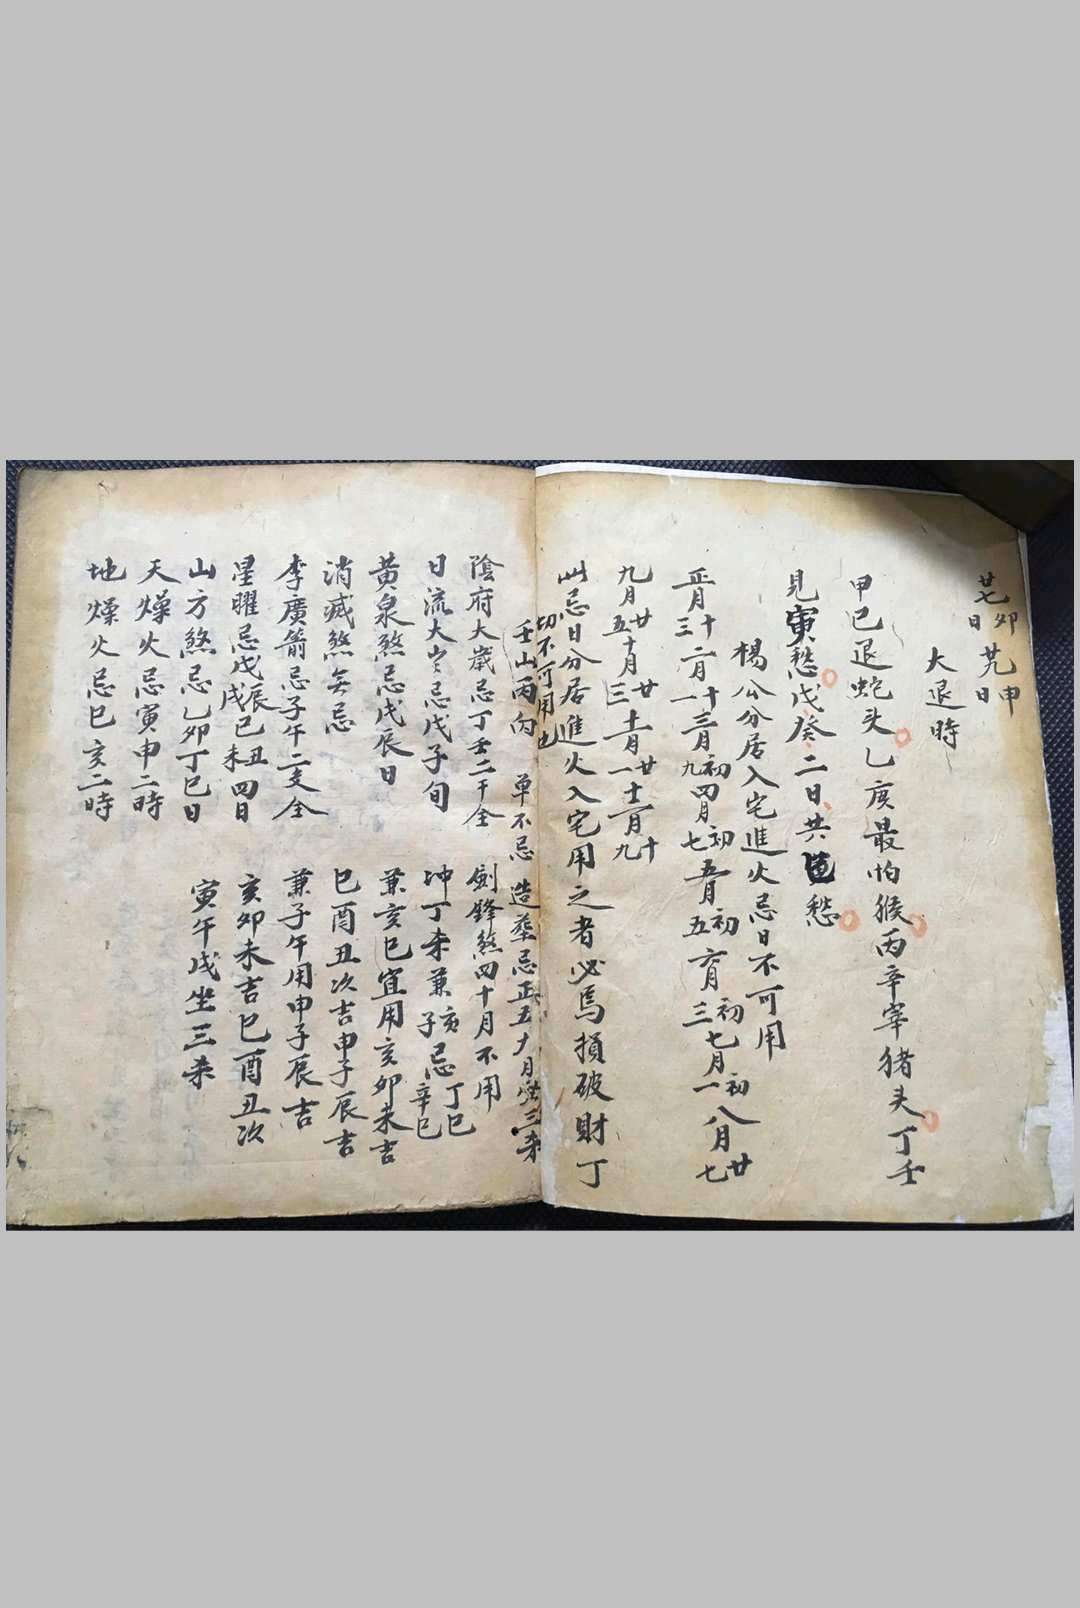 廿七日卯 廿九日申
大退時
甲己退蛇头乙庚最怕猴丙辛宰猪头丁壬
見寅愁戊癸二日共愁
楊公分居入宅進火忌日不可用
正月十三二月十一三月初九四月初七五月初五六月初三七月初一八月廿七
九月廿五十月廿三十一月廿一十二月十九
此忌日分居進火入宅用之者必馬損破財丁
切不可用也
壬山丙向 单不忌 造塟忌正五九月坐三杀
陰府大歲忌丁壬二干全 劍鋒煞四十月不用
日流大忌戊子旬 坤丁杀兼亥子忌丁巳辛巳
黄泉煞忌戊辰日 兼亥巳宜用亥卯未吉
消滅煞無忌 巳酉丑次吉申子辰吉
李廣箭忌子午二支全 兼子午用申子辰吉
星曜忌戊辰戊戌己丑己未四日 亥卯未吉巳酉丑次
山方煞忌乙卯丁巳日 寅午戌坐三杀
天燥火忌寅申二時
地燥火忌巳亥二時